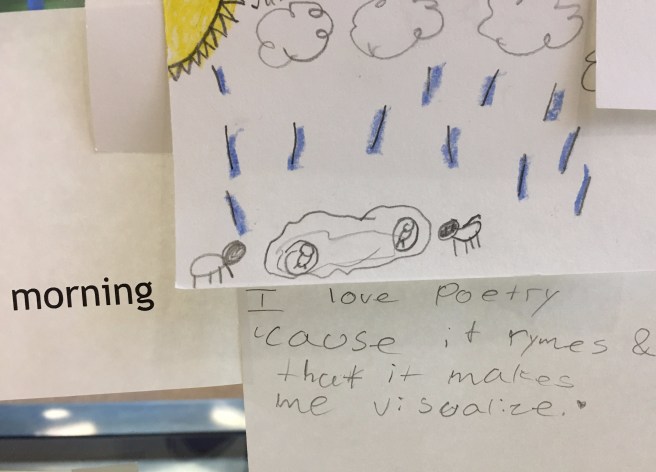 morning
I love Poetry
'cause it rymes &
that it makes
me visualize.